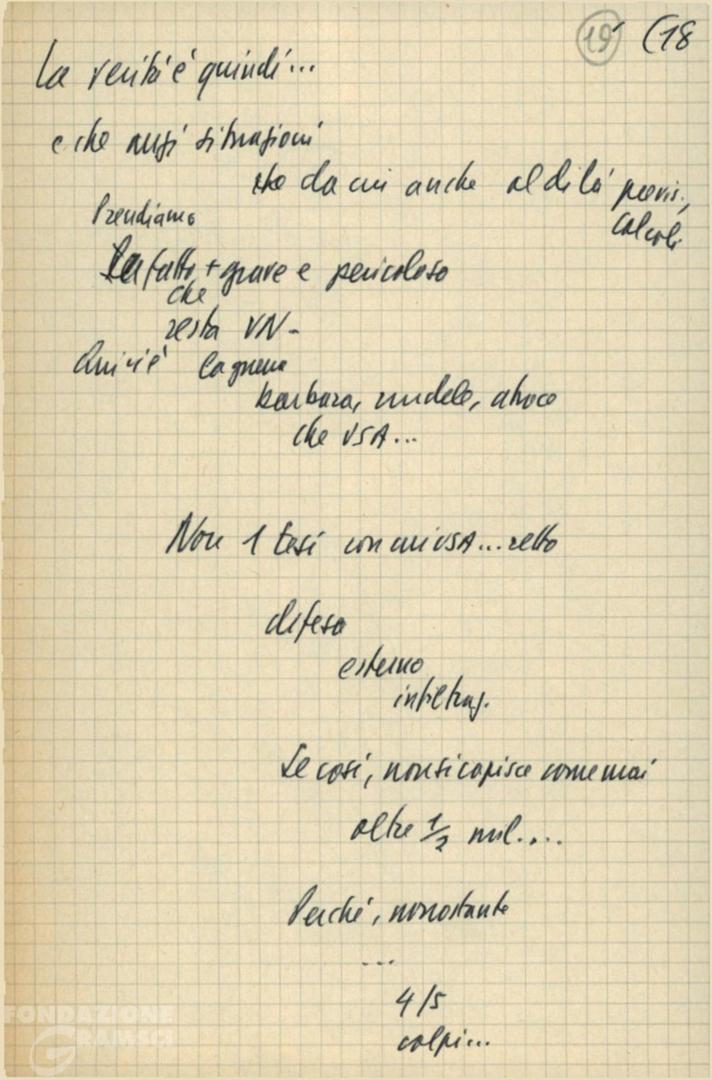 19 (18
La verità è quindi...
e che anzi situazioni
da cui anche al di là previs.,
calcoli
Prendiamo
fatto + grave e pericoloso
che
resta VN -
Qui c'è la guerra
barbara, crudele, atroce
che USA...
Non 1 tesi con cui USA... retto
difesa
esterno
infiltraz.
Se così, non si capisce come mai
oltre 1/2 mil....
Perché, nonostante
...
4/5
colpi...
FONDAZIONE
GRAMSCI